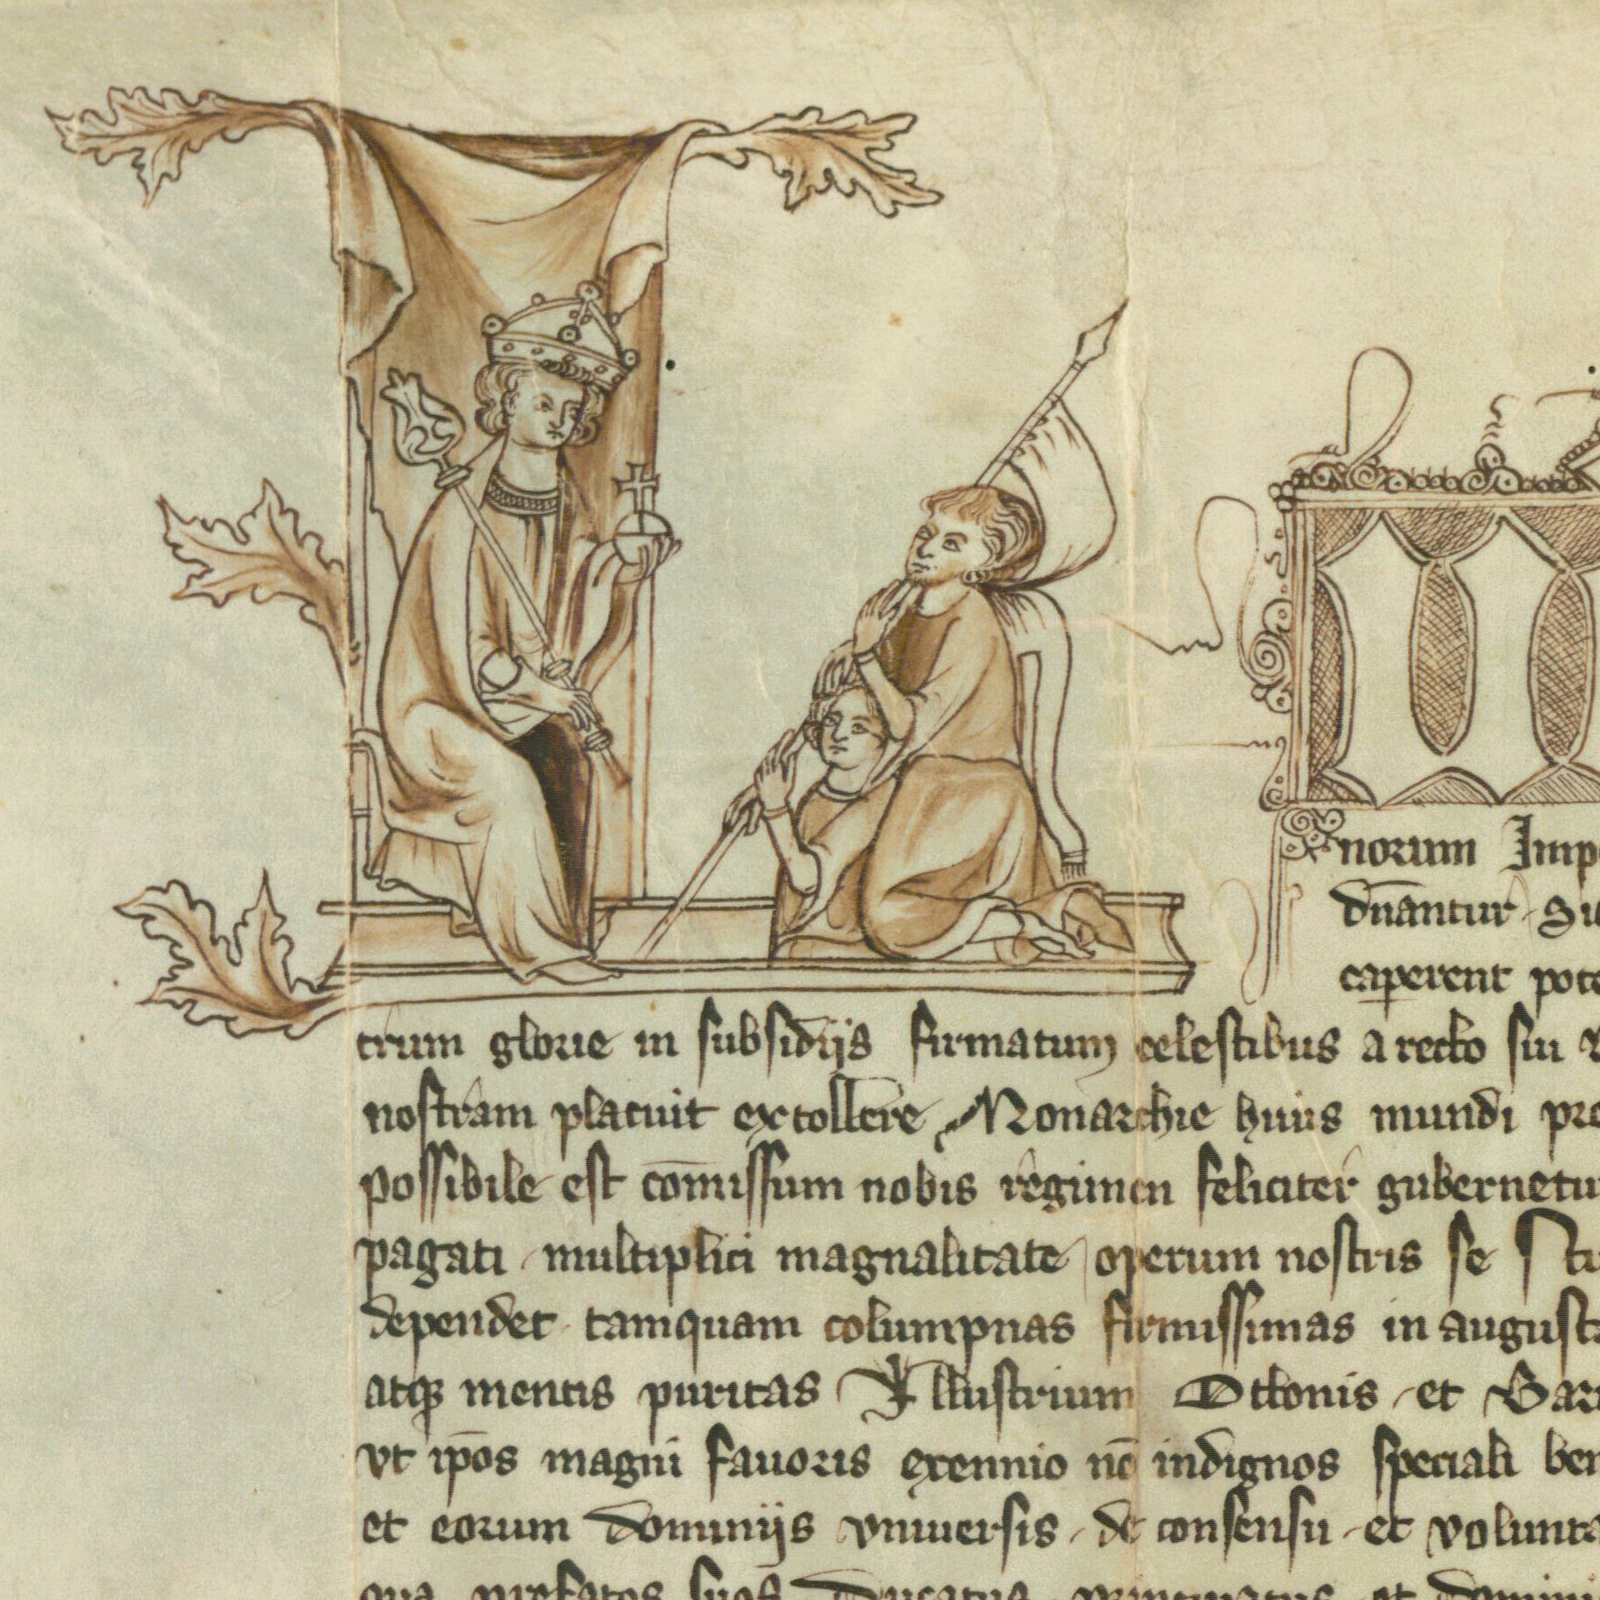 norum Imp
dn̄antur Su
caperent pote
trum glorie in subsidijs firmatum celestibus a recto sui
nostram placuit extollere Monarchie huius mundi pre
possibile est com̄issum nobis regimen feliciter gubernetur
pagati multiplici magnalitate operum nostris se
dependet tamquam columpnas firmissimas in august
atqꝫ mentis puritas Illustrium Ottonis et Bar
vt ip̄os magni fauoris exennio nō indignos speciali ben
et eorum dominijs vniuersis de consensu et volunta
qua prefatos suos Ducatus principatus et domini